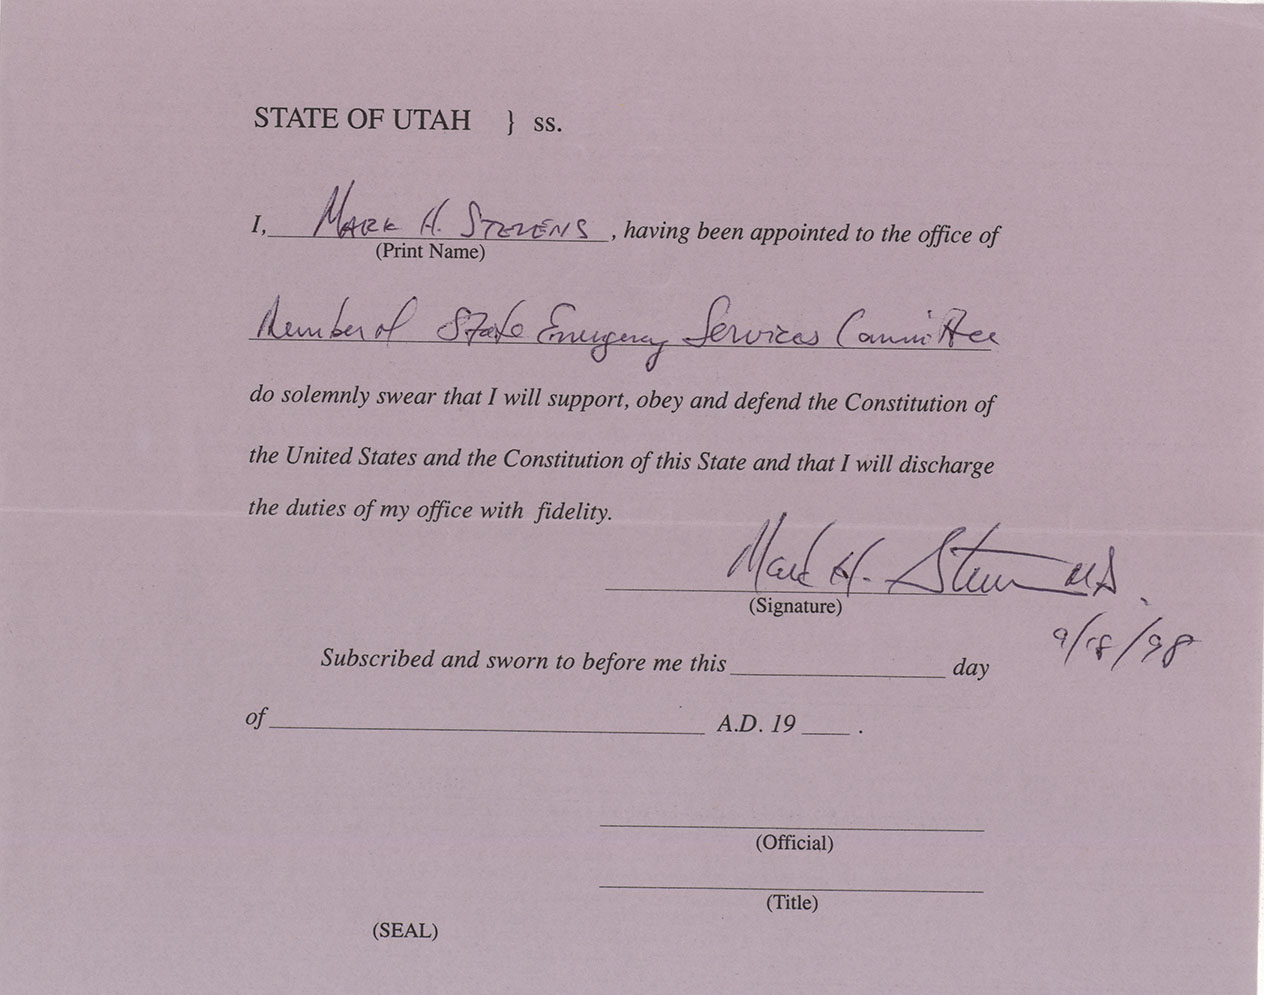 STATE OF UTAH } ss.
I, MARK H. STEVENS, having been appointed to the office of
(Print Name)
Member of State Emergency Services Committee
do solemnly swear that I will support, obey and defend the Constitution of
the United States and the Constitution of this State and that I will discharge
the duties of my office with fidelity.
Mark H. Stevens MD.
(Signature)
9/18/98
Subscribed and sworn to before me this ____ day
of ____ A.D. 19 ____ .
(Official)
(Title)
(SEAL)